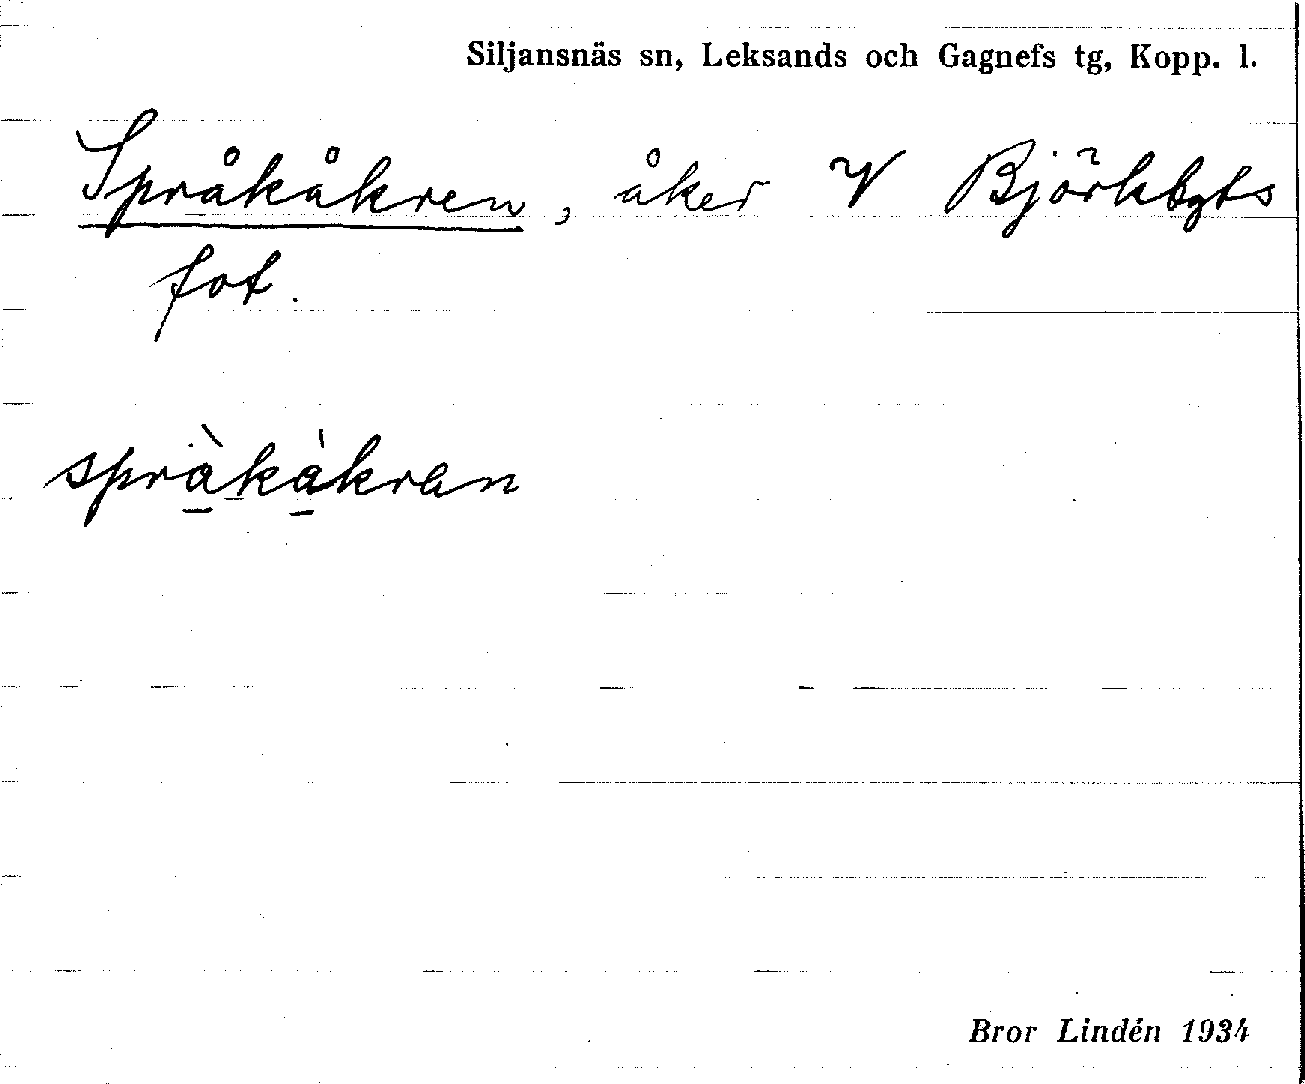 Siljansnäs sn, Leksands och Gagnefs tg, Kopp. l.
Språkåkren, åker V Björkbgts
fot.
språ̀kàkran
Bror Lindén 1934